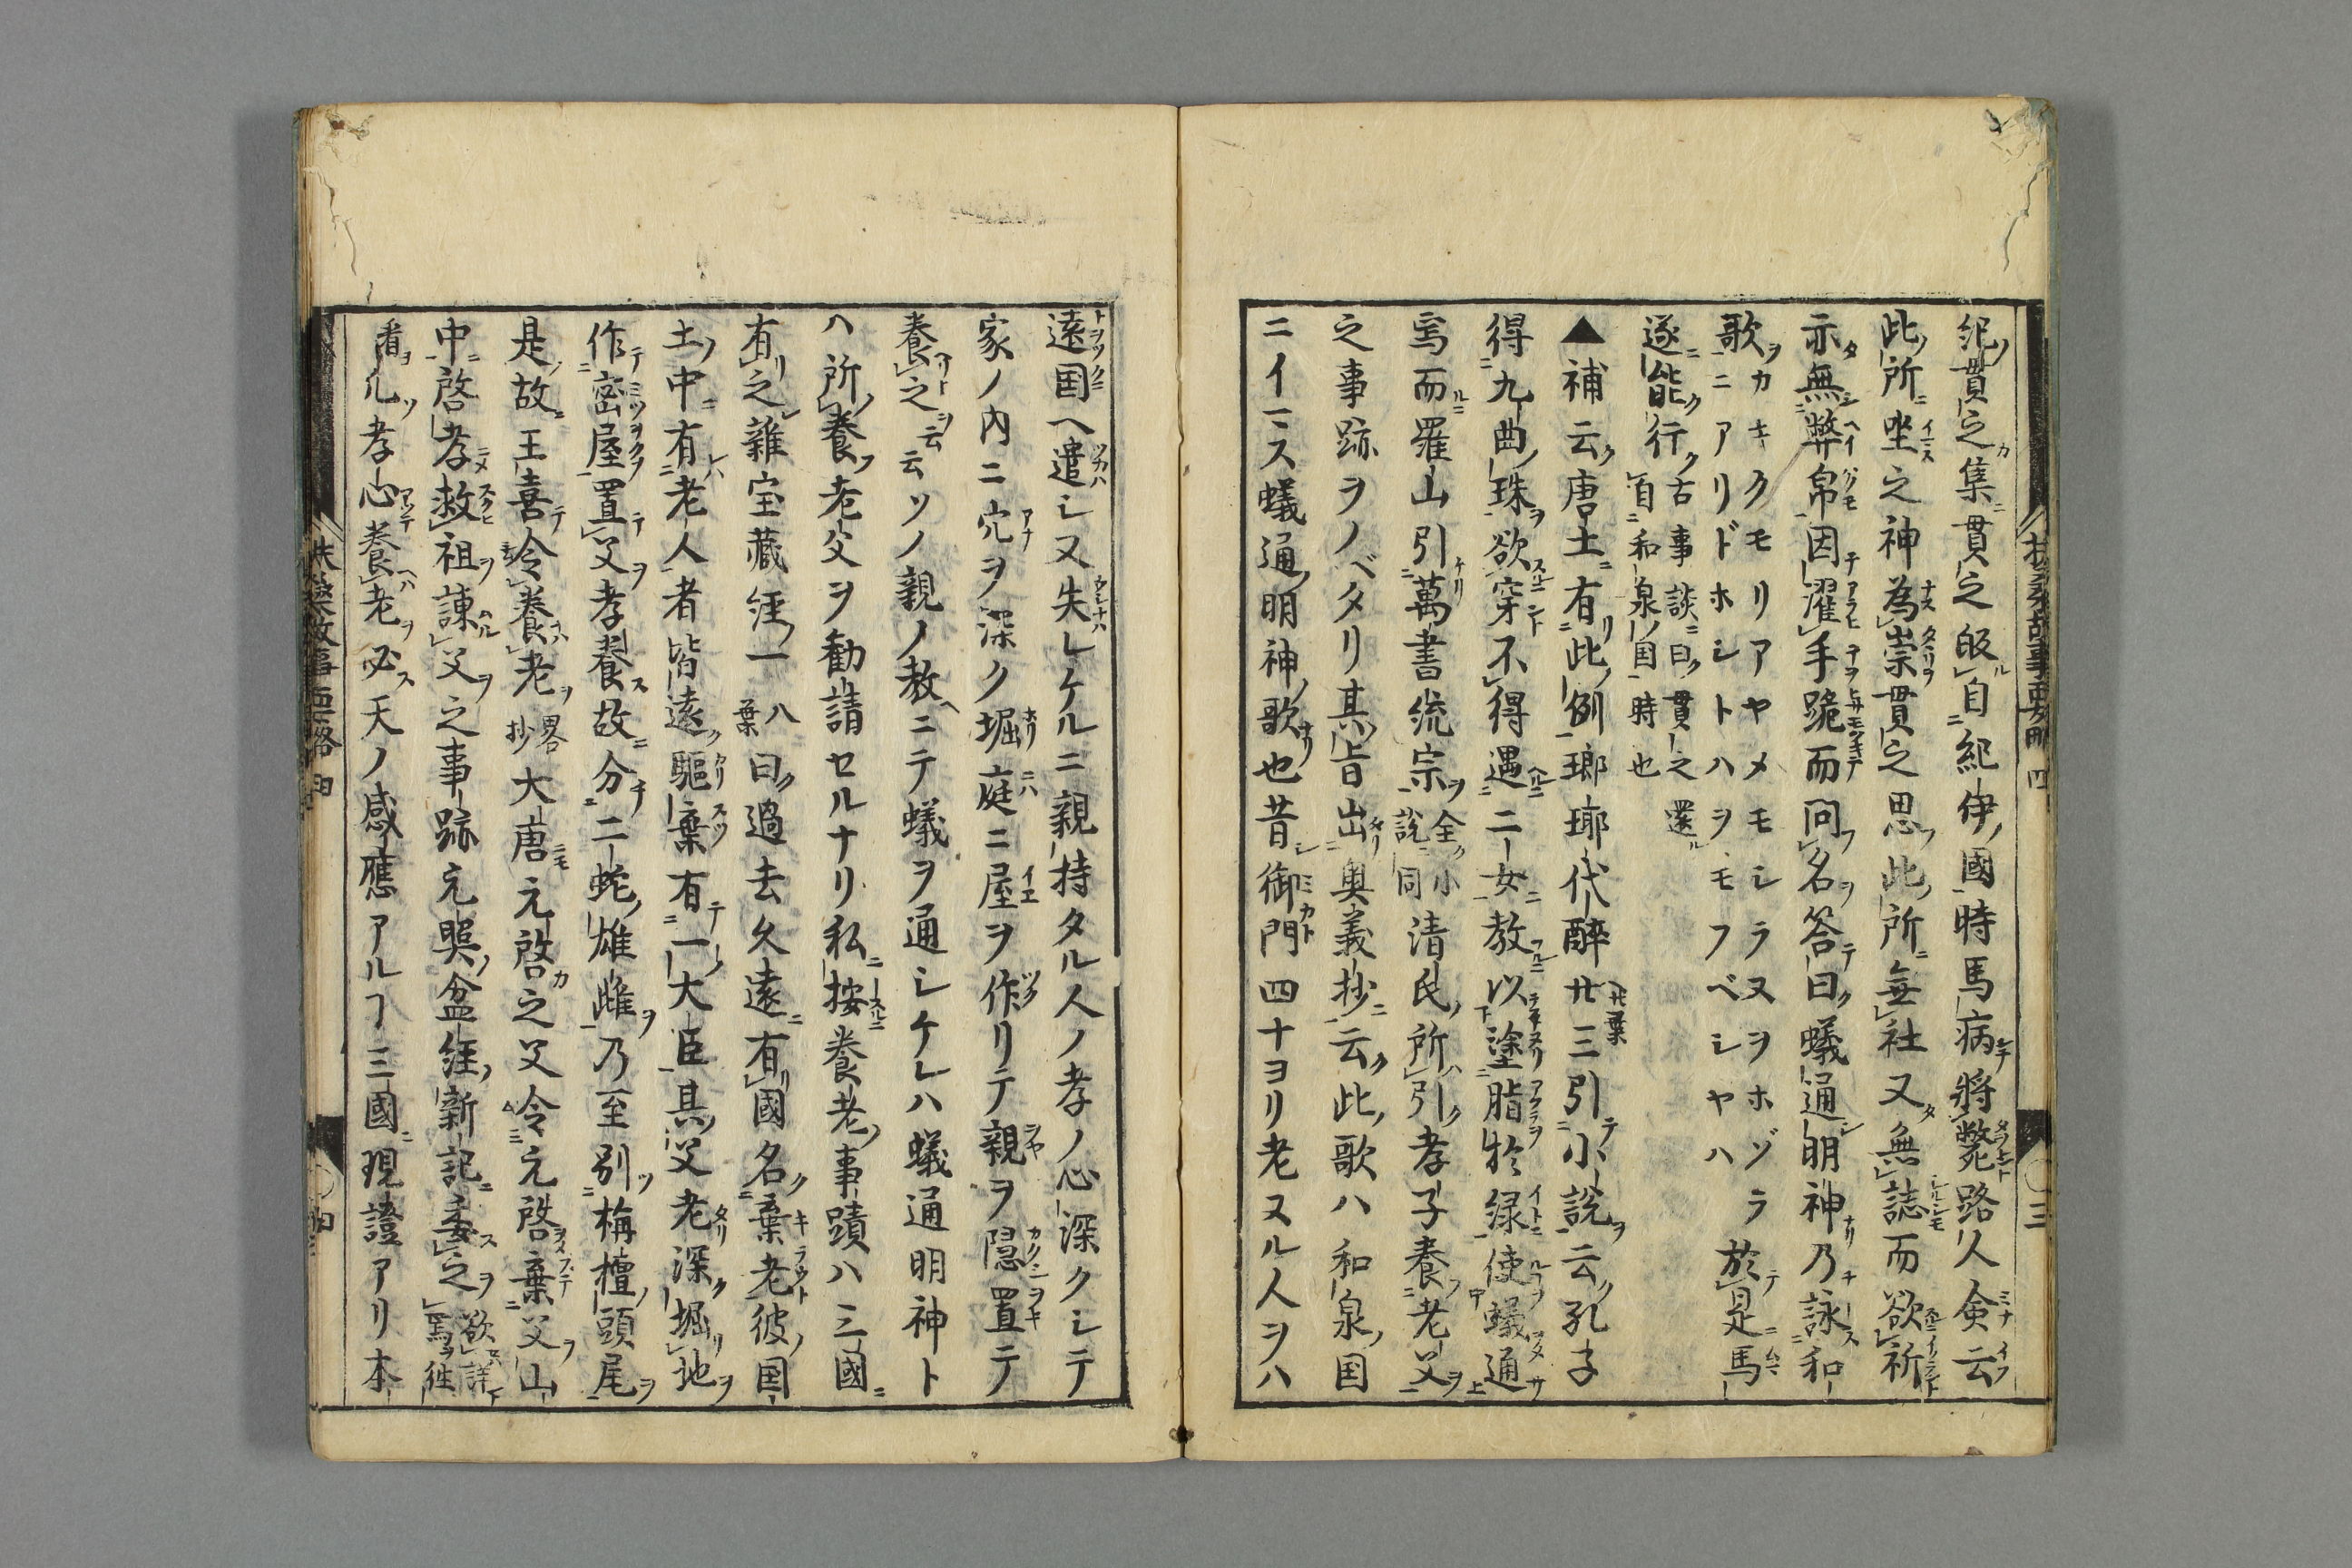 紀貫之集貫之皈自紀伊國時馬病將斃路人僉云
此所坐之神為崇貫之思此所無社又無誌而欲祈
亦無弊帛因濯手跪而問名答曰蟻通明神乃詠和
歌カキクモリアヤメモシラヌヲホゾラ
ニアリドホシトハヲモフベシヤハ 於是馬
遂能行 古事談曰貫之還
自和泉国時也
▲補云唐土有此例瑯琊代醉廿三引小説云孔子
得九曲珠欲穿不得遇二女教以塗脂於緑使蟻通
焉而羅山引萬書統宗全小説同清民所引孝子養老父
之事跡ヲノベタリ其旨出奥義抄云此歌ハ和泉国
ニイマス蟻通明神歌也昔御門四十ヨリ老ヌル人ヲハ
遠国ヘ遣シ又失レケルニ親持タル人ノ孝ノ心深クシテ
家ノ内ニ穴ヲ深ク堀庭ニ屋ヲ作リテ親ヲ隠置テ
養之云云ソノ親ノ教ニテ蟻ヲ通シケレハ蟻通明神ト
ハ所養老父ヲ勧請セルナリ私按養老事蹟ハ三國
有之雜宝藏経一八葉曰過去久遠有國名棄老彼国
土中有老人者皆遠驅棄有一大臣其父老深堀地
作密屋置父孝養故分二蛇雄雌乃至別栴檀頭尾
是故王喜令養老畧抄大唐元啓之父令元啓棄父山
中啓孝救祖諫父之事跡元照盆経新記委之欲詳焉徃
看凡孝心養老必天ノ感應アルヿ三國現證アリ本